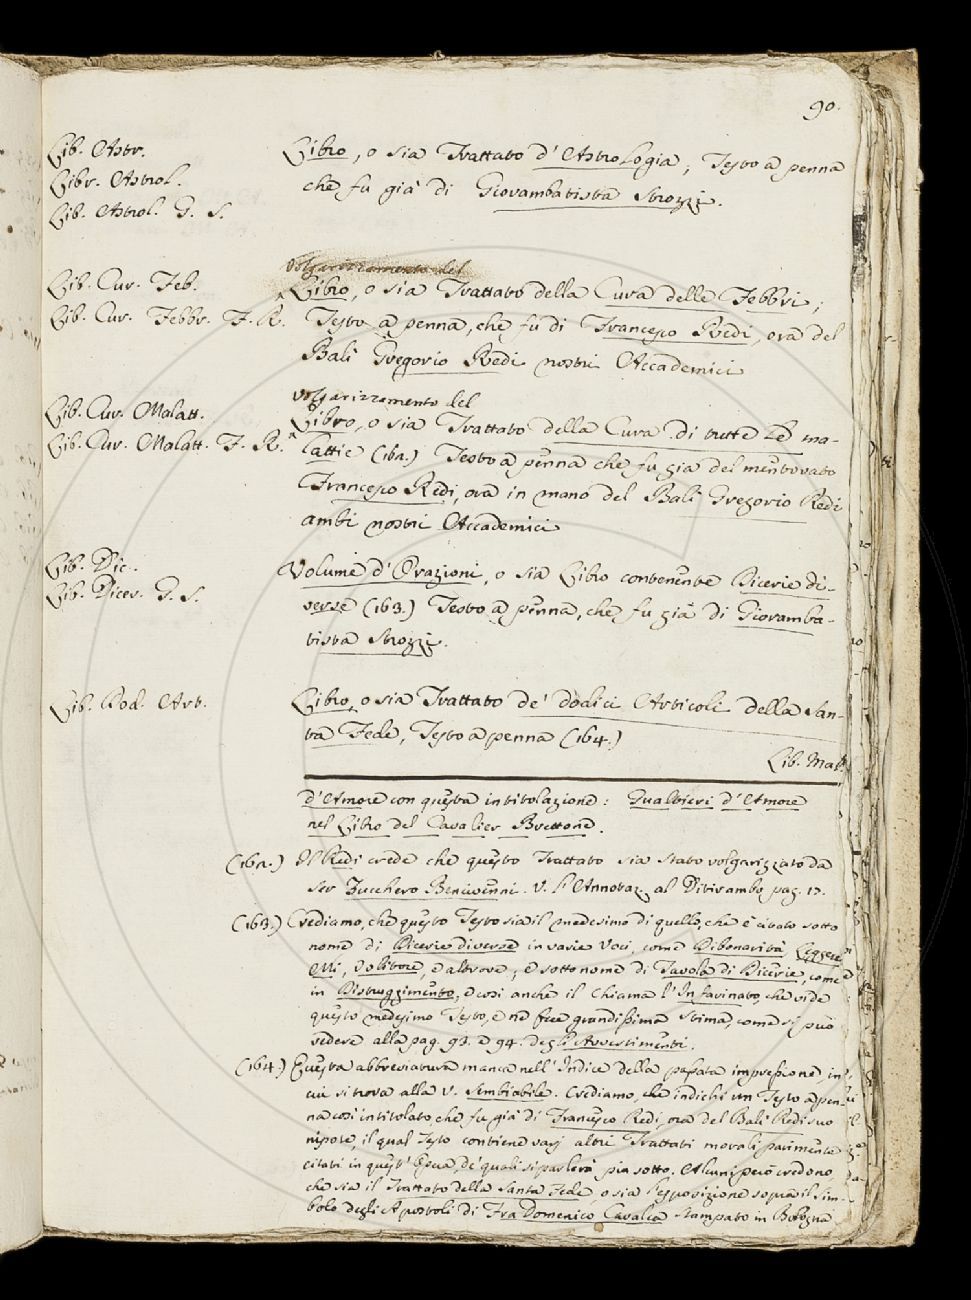 90.
Lib. Astr.
Libr. Astrol.
Lib. Astrol. G. S.
Libro, o sia Trattato d'Astrologia; Testo a penna
che fu già di Giovambatista Strozzi.
Lib. Cur. Feb.
Lib. Cur. Febbr. F. R.
Volgarizzamento del
Libro, o sia Trattato della Cura delle Febbri;
Testo a penna, che fu di Francesco Redi, ora del
Balì Gregorio Redi nostri Accademici
Lib. Cur. Malatt.
Lib. Cur. Malatt. F. R.
Volgarizzamento del
Libro, o sia Trattato della Cura di tutte le ma-
lattie (162.) Testo a penna che fu già del mentovato
Francesco Redi, ora in mano del Balì Gregorio Redi
ambi nostri Accademici
Lib. Dic.
Lib. Dicer. G. S.
Volume d'Orazioni, o sia Libro contenente Dicerie di-
verse (163.) Testo a penna, che fu già di Giovamba-
tista Strozzi.
Lib. Dod. Art.
Libro, o sia Trattato de' dodici Articoli della San-
ta Fede, Testo a penna (164.)
Lib. Mat
d'Amore con questa intitolazione: Gualtieri d'Amore
nel Libro del Cavalier Brettone.
(162.) Il Redi crede che questo Trattato sia stato volgarizzato da
Ser Zucchero Bencivenni. V. l'Annotaz. al Ditirambo pag. 17.
(163.) Crediamo, che questo Testo sia il medesimo di quello, che è citato sotto
nome di Dicerie diverse in varie Voci, come Dibonarità
e altrove; e sotto nome di Tavola di Dicerie, come
in Distruggimento, e così anche il chiama l'Infarinato, che vide
questo medesimo Testo, e ne fece grandissima stima, come si può
vedere alla pag. 93. e 94. degli Avvertimenti.
(164.) Questa abbreviatura manca nell'Indice della passata impressione, in
cui si trova alla V. Sembiabile. Crediamo, che indichi un Testo a pen-
na così intitolato, che fu già di Francesco Redi, ora del Balì Redi suo
nipote, il qual Testo contiene varj altri Trattati morali parimente
citati in quest'Opera, de' quali si parlerà più sotto. Alcuni però credono
che sia il Trattato della Santa Fede, o sia l'esposizione sopra il Sim-
bolo degli Apostoli di Fra Domenico Cavalca stampato in Bologna